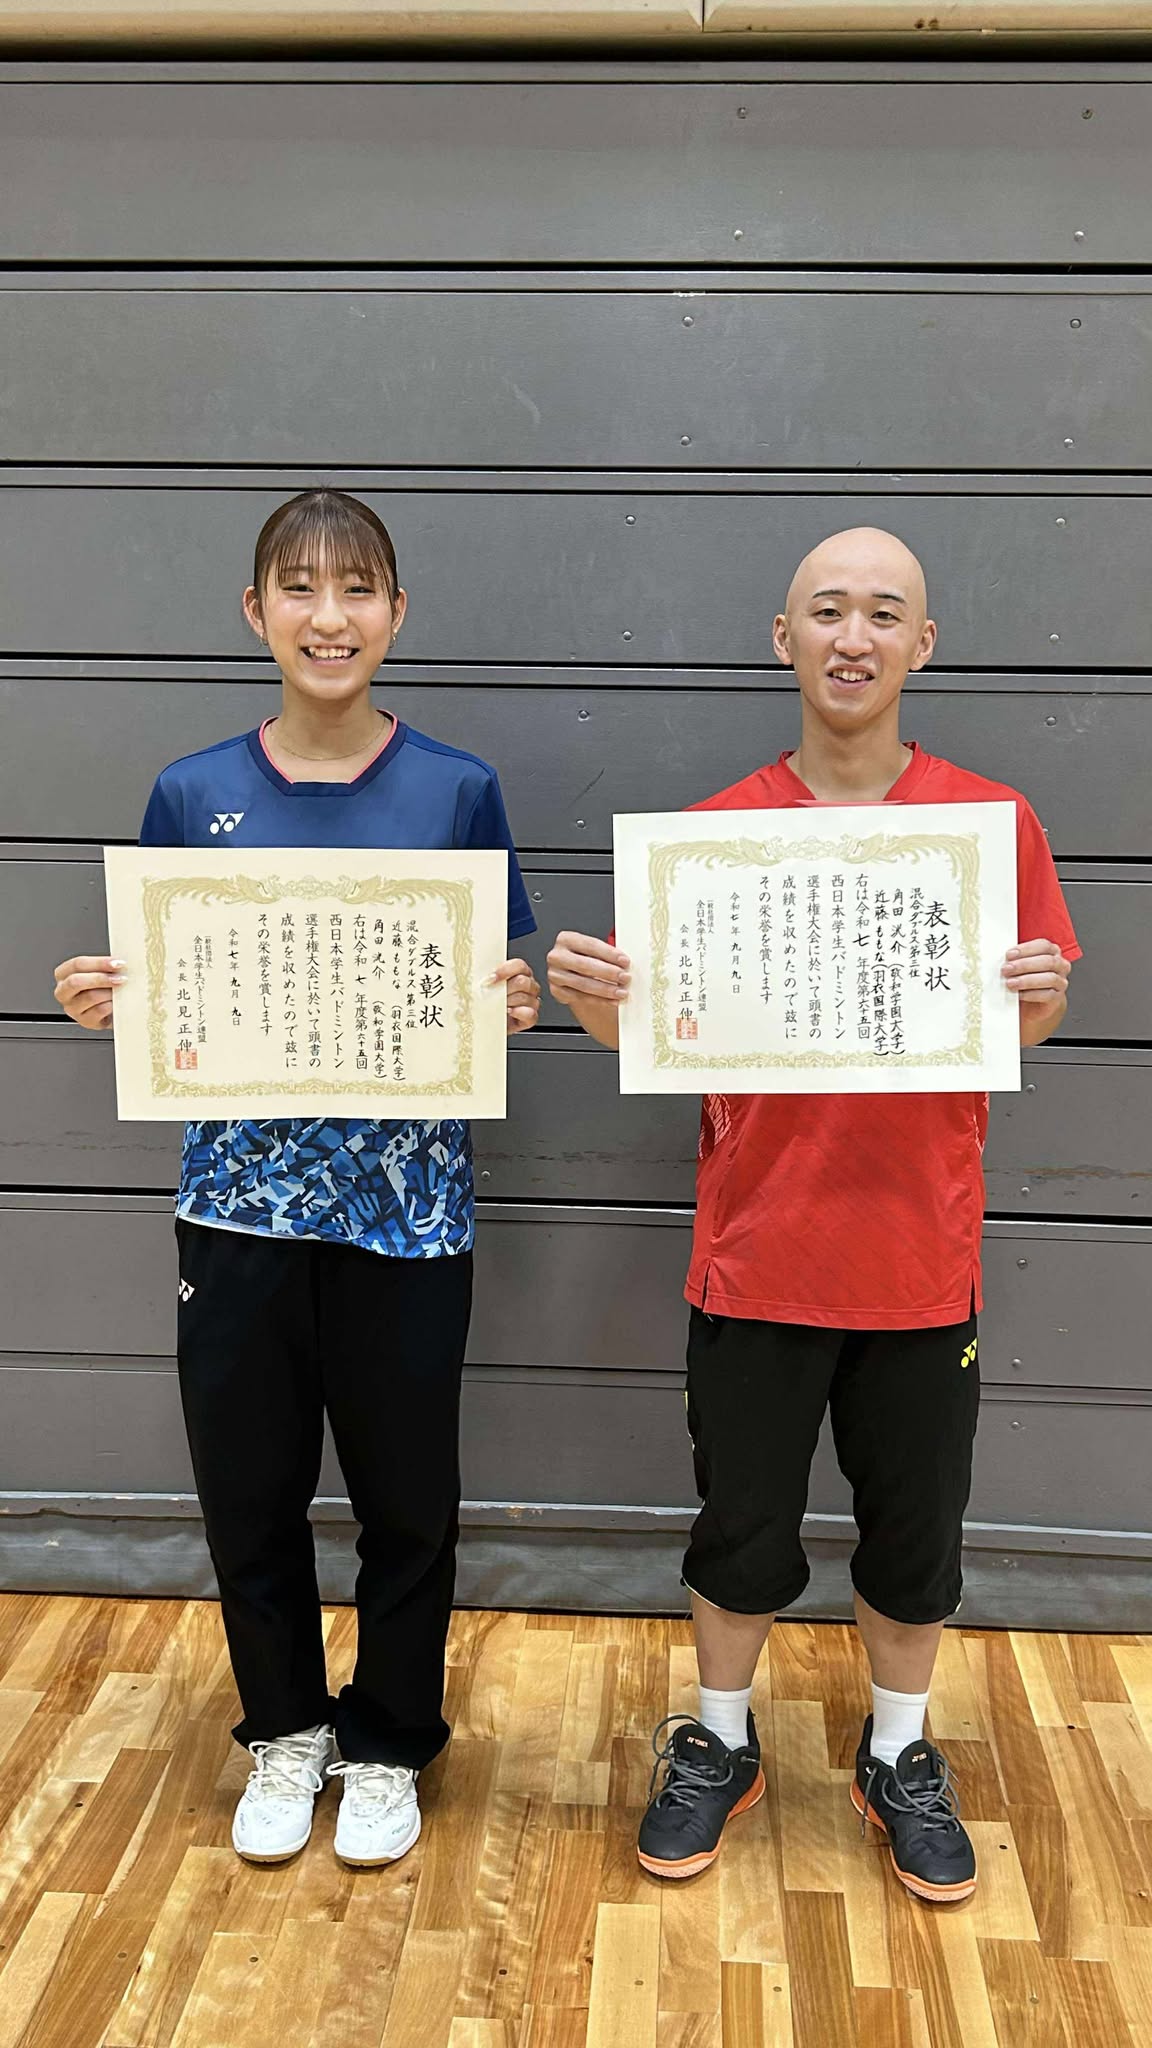 表彰状
混合ダブルス 第三位
近藤 ももな (羽衣国際大学)
角田 洸介 (敬和学園大学)
右は令和 七 年度第六十五回
西日本学生バドミントン
選手権大会に於いて頭書の
成績を収めたので茲に
その栄誉を賞します
令和 七 年 九 月 九 日
一般社団法人
全日本学生バドミントン連盟
会長 北見正伸
表彰状
混合ダブルス 第三位
角田 洸介 (敬和学園大学)
近藤 ももな (羽衣国際大学)
右は令和 七 年度第六十五回
西日本学生バドミントン
選手権大会に於いて頭書の
成績を収めたので茲に
その栄誉を賞します
令和 七 年 九 月 九 日
一般社団法人
全日本学生バドミントン連盟
会長 北見正伸
YONEX
YONEX